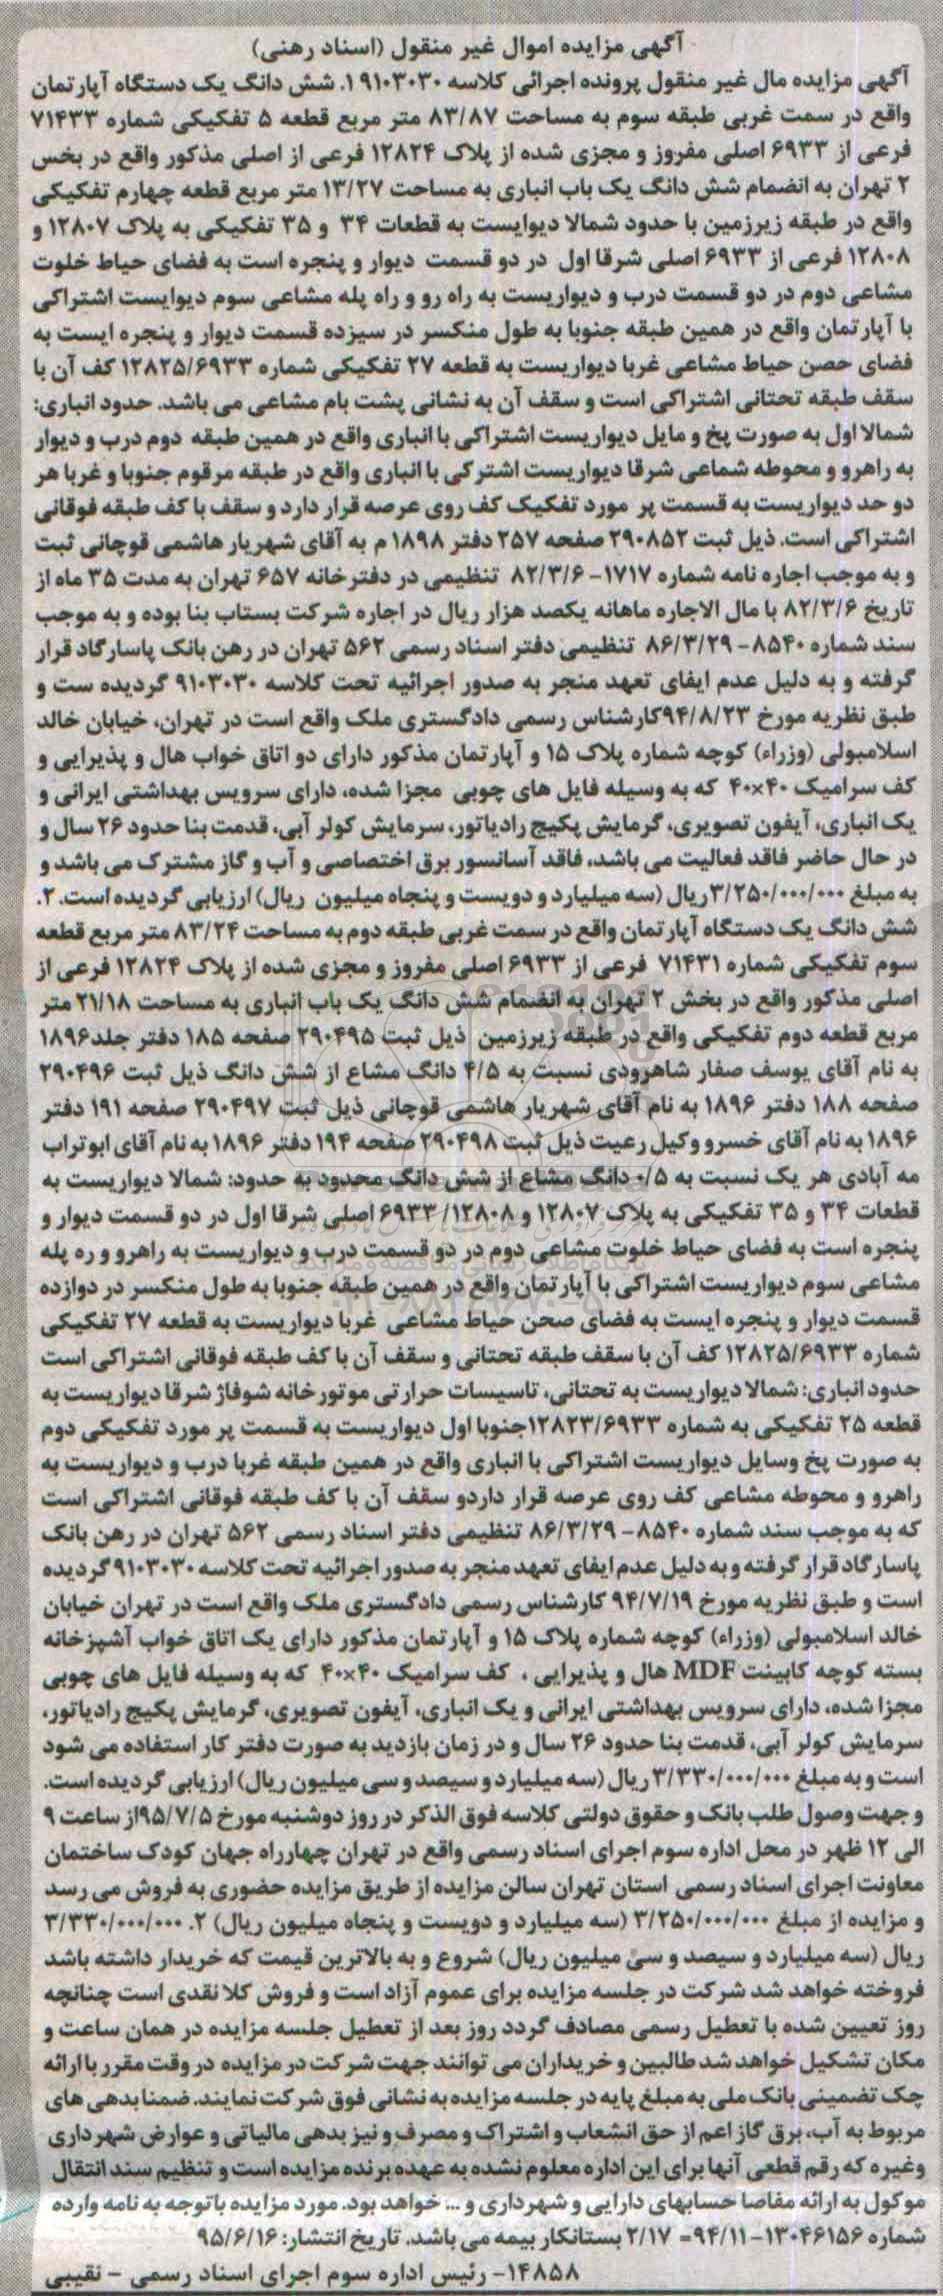 آگهی مزایده اموال غیر منقول (اسناد رهنی)
آگهی مزایده مال غیر منقول پرونده اجرائی کلاسه ۹۱۰۳۰۳۰ ۱. شش دانگ یک دستگاه آپارتمان
واقع در سمت غربی طبقه سوم به مساحت ۸۳/۸۷ متر مربع قطعه ۵ تفکیکی شماره ۷۱۴۳۳
فرعی از ۶۹۳۳ اصلی مفروز و مجزی شده از پلاک ۱۲۸۲۴ فرعی از اصلی مذکور واقع در بخس
۲ تهران به انضمام شش دانگ یک باب انباری به مساحت ۱۳/۲۷ متر مربع قطعه چهارم تفکیکی
واقع در طبقه زیرزمین با حدود شمالا دیوایست به قطعات ۳۴ و ۳۵ تفکیکی به پلاک ۱۲۸۰۷ و
۱۲۸۰۸ فرعی از ۶۹۳۳ اصلی شرقا اول در دو قسمت دیوار و پنجره است به فضای حیاط خلوت
مشاعی دوم در دو قسمت درب و دیواریست به راه رو و راه پله مشاعی سوم دیوایست اشتراکی
با آپارتمان واقع در همین طبقه جنوبا به طول منکسر در سیزده قسمت دیوار و پنجره ایست به
فضای حصن حیاط مشاعی غربا دیواریست به قطعه ۲۷ تفکیکی شماره ۱۲۸۲۵/۶۹۳۳ کف آن با
سقف طبقه تحتانی اشتراکی است و سقف آن به نشانی پشت بام مشاعی می باشد. حدود انباری:
شمالا اول به صورت پخ و مایل دیواریست اشتراکی با انباری واقع در همین طبقه دوم درب و دیوار
به راهرو و محوطه شماعی شرقا دیواریست اشترکی با انباری واقع در طبقه مرقوم جنوبا و غربا هر
دو حد دیواریست به قسمت پر مورد تفکیک کف روی عرصه قرار دارد و سقف با کف طبقه فوقانی
اشتراکی است. ذیل ثبت ۲۹۰۸۵۲ صفحه ۲۵۷ دفتر ۱۸۹۸ م به آقای شهریار هاشمی قوچانی ثبت
و به موجب اجاره نامه شماره ۱۷۱۷- ۸۲/۳/۶ تنظیمی در دفترخانه ۶۵۷ تهران به مدت ۳۵ ماه از
تاریخ ۸۲/۳/۶ با مال الاجاره ماهانه یکصد هزار ریال در اجاره شرکت بستاب بنا بوده و به موجب
سند شماره ۸۵۴۰- ۸۶/۳/۲۹ تنظیمی دفتر اسناد رسمی ۵۶۲ تهران در رهن بانک پاسارگاد قرار
گرفته و به دلیل عدم ایفای تعهد منجر به صدور اجرائیه تحت کلاسه ۹۱۰۳۰۳۰ گردیده ست و
طبق نظریه مورخ ۹۴/۸/۲۳کارشناس رسمی دادگستری ملک واقع است در تهران، خیابان خالد
اسلامبولی (وزراء) کوچه شماره پلاک ۱۵ و آپارتمان مذکور دارای دو اتاق خواب هال و پذیرایی و
کف سرامیک ۴۰×۴۰ که به وسیله فایل های چوبی مجزا شده، دارای سرویس بهداشتی ایرانی و
یک انباری، آیفون تصویری، گرمایش پکیج رادیاتور، سرمایش کولر آبی، قدمت بنا حدود ۲۶ سال و
در حال حاضر فاقد فعالیت می باشد، فاقد آسانسور برق اختصاصی و آب و گاز مشترک می باشد و
به مبلغ ۳/۲۵۰/۰۰۰/۰۰۰ریال (سه میلیارد و دویست و پنجاه میلیون ریال) ارزیابی گردیده است. ۲.
شش دانگ یک دستگاه آپارتمان واقع در سمت غربی طبقه دوم به مساحت ۸۳/۲۴ متر مربع قطعه
سوم تفکیکی شماره ۷۱۴۳۱ فرعی از ۶۹۳۳ اصلی مفروز و مجزی شده از پلاک ۱۲۸۲۴ فرعی از
اصلی مذکور واقع در بخش ۲ تهران به انضمام شش دانگ یک باب انباری به مساحت ۲۱/۱۸ متر
مربع قطعه دوم تفکیکی واقع در طبقه زیرزمین ذیل ثبت ۲۹۰۴۹۵ صفحه ۱۸۵ دفتر جلد۱۸۹۶
به نام آقای یوسف صفار شاهرودی نسبت به ۴/۵ دانگ مشاع از شش دانگ ذیل ثبت ۲۹۰۴۹۶
صفحه ۱۸۸ دفتر ۱۸۹۶ به نام آقای شهریار هاشمی قوچانی ذیل ثبت ۲۹۰۴۹۷ صفحه ۱۹۱ دفتر
۱۸۹۶ به نام آقای خسرو وکیل رعیت ذیل ثبت ۲۹۰۴۹۸ صفحه ۱۹۴ دفتر ۱۸۹۶ به نام آقای ابوتراب
مه آبادی هر یک نسبت به ۰/۵ دانگ مشاع از شش دانگ محدود به حدود: شمالا دیواریست به
قطعات ۳۴ و ۳۵ تفکیکی به پلاک ۱۲۸۰۷ و ۱۲۸۰۸/ ۶۹۳۳ اصلی شرقا اول در دو قسمت دیوار و
پنجره است به فضای حیاط خلوت مشاعی دوم در دو قسمت درب و دیواریست به راهرو و ره پله
مشاعی سوم دیواریست اشتراکی با آپارتمان واقع در همین طبقه جنوبا به طول منکسر در دوازده
قسمت دیوار و پنجره ایست به فضای صحن حیاط مشاعی غربا دیواریست به قطعه ۲۷ تفکیکی
شماره ۱۲۸۲۵/۶۹۳۳ کف آن با سقف طبقه تحتانی و سقف آن با کف طبقه فوقانی اشتراکی است
حدود انباری: شمالا دیواریست به تحتانی، تاسیسات حرارتی موتورخانه شوفاژ شرقا دیواریست به
قطعه ۲۵ تفکیکی به شماره ۱۲۸۲۳/۶۹۳۳جنوبا اول دیواریست به قسمت پر مورد تفکیکی دوم
به صورت پخ وسایل دیواریست اشتراکی با انباری واقع در همین طبقه غربا درب و دیواریست به
راهرو و محوطه مشاعی کف روی عرصه قرار داردو سقف آن با کف طبقه فوقانی اشتراکی است
که به موجب سند شماره ۸۵۴۰- ۸۶/۳/۲۹ تنظیمی دفتر اسناد رسمی ۵۶۲ تهران در رهن بانک
پاسارگاد قرار گرفته و به دلیل عدم ایفای تعهد منجر به صدور اجرائیه تحت کلاسه ۹۱۰۳۰۳۰ گردیده
است و طبق نظریه مورخ ۹۴/۷/۱۹ کارشناس رسمی دادگستری ملک واقع است در تهران خیابان
خالد اسلامبولی (وزراء) کوچه شماره پلاک ۱۵ و آپارتمان مذکور دارای یک اتاق خواب آشپزخانه
بسته کوچه کابینت MDF هال و پذیرایی ، کف سرامیک ۴۰×۴۰ که به وسیله فایل های چوبی
مجزا شده، دارای سرویس بهداشتی ایرانی و یک انباری، آیفون تصویری، گرمایش پکیج رادیاتور،
سرمایش کولر آبی، قدمت بنا حدود ۲۶ سال و در زمان بازدید به صورت دفتر کار استفاده می شود
است و به مبلغ ۳/۳۳۰/۰۰۰/۰۰۰ ریال (سه میلیارد و سیصد و سی میلیون ریال) ارزیابی گردیده است.
و جهت وصول طلب بانک و حقوق دولتی کلاسه فوق الذکر در روز دوشنبه مورخ ۹۵/۷/۵از ساعت ۹
الی ۱۲ ظهر در محل اداره سوم اجرای اسناد رسمی واقع در تهران چهارراه جهان کودک ساختمان
معاونت اجرای اسناد رسمی استان تهران سالن مزایده از طریق مزایده حضوری به فروش می رسد
و مزایده از مبلغ ۳/۲۵۰/۰۰۰/۰۰۰ (سه میلیارد و دویست و پنجاه میلیون ریال) ۲. ۳/۳۳۰/۰۰۰/۰۰۰
ریال (سه میلیارد و سیصد و سی میلیون ریال) شروع و به بالاترین قیمت که خریدار داشته باشد
فروخته خواهد شد شرکت در جلسه مزایده برای عموم آزاد است و فروش کلا نقدی است چنانچه
روز تعیین شده با تعطیل رسمی مصادف گردد روز بعد از تعطیل جلسه مزایده در همان ساعت و
مکان تشکیل خواهد شد طالبین و خریداران می توانند جهت شرکت در مزایده در وقت مقرر با ارائه
چک تضمینی بانک ملی به مبلغ پایه در جلسه مزایده به نشانی فوق شرکت نمایند. ضمنا بدهی های
مربوط به آب، برق گاز اعم از حق انشعاب و اشتراک و مصرف و نیز بدهی مالیاتی و عوارض شهرداری
وغیره که رقم قطعی آنها برای این اداره معلوم نشده به عهده برنده مزایده است و تنظیم سند انتقال
موکول به ارائه مفاصا حسابهای دارایی و شهرداری و ... خواهد بود. مورد مزایده باتوجه به نامه وارده
شماره ۱۳۰۴۶۱۵۶-۹۴/۱۱= ۲/۱۷ بستانکار بیمه می باشد. تاریخ انتشار: ۹۵/۶/۱۶
۱۴۸۵۸- رئیس اداره سوم اجرای اسناد رسمی - نقیبی